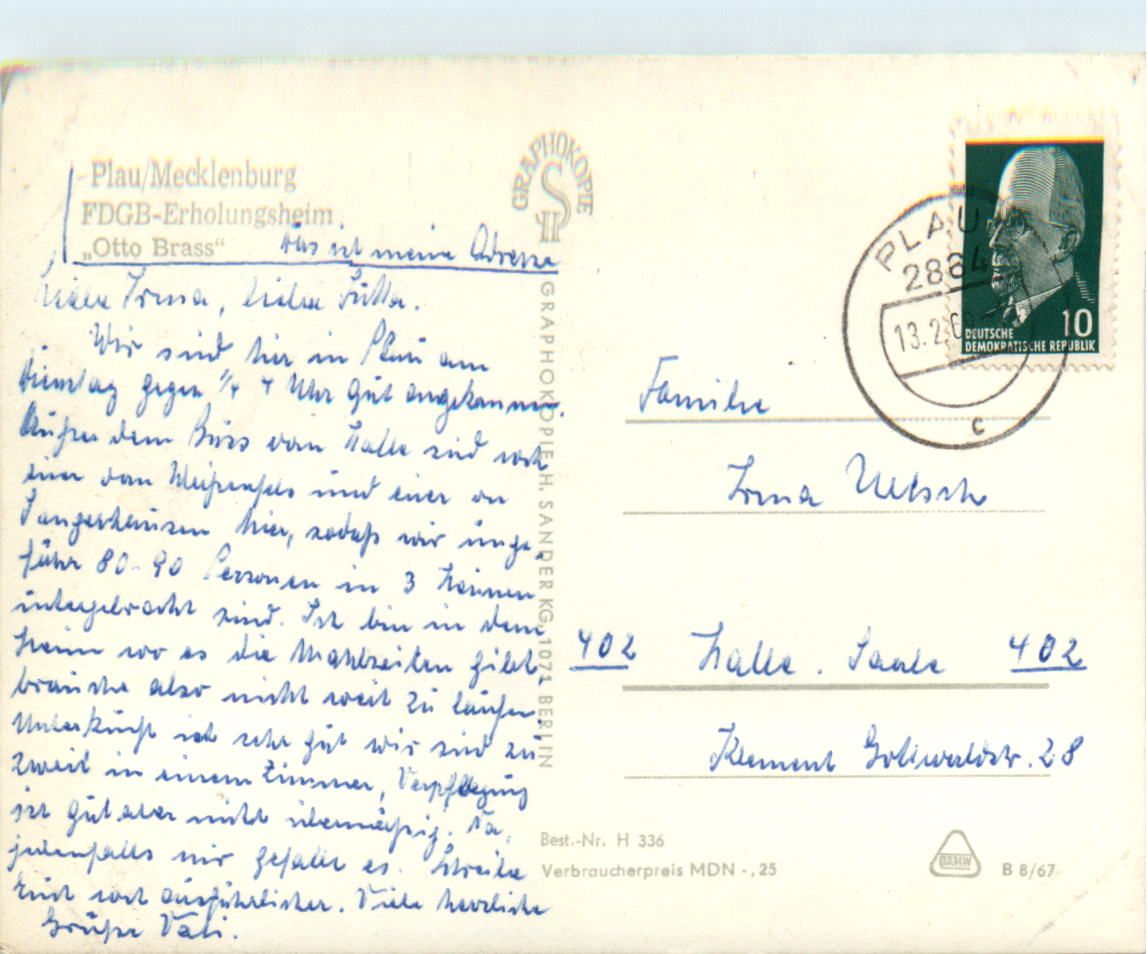 Plau/Mecklenburg
FDGB-Erholungsheim
„Otto Brass“ Das ist meine Adresse
Liebe Irma, liebe Jutta.
Wir sind hier in Plau am
Dienstag gegen 1/4 4 Uhr gut angekommen.
Außer dem Büro von Halle sind noch
einer von Weißenfels und einer von
Sangerhausen hier, sodaß wir unge-
führ 80-90 Personen in 3 Heimen
untergebracht sind. Ich bin in dem
Heim wo es die Mahlzeiten gibt,
brauche also nicht weit zu laufen.
Unterkunft ist sehr gut wir sind zu
zweit in einem Zimmer, Verpflegung
ist gut aber nicht übermäßig. Na,
jedenfalls mir gefällt es. Schreibe
Euch noch ausführlicher. Viele herzliche
Grüße Vati.
GRAPHOKOPIE
H S
GRAPHOKOPIE H. SANDER KG, 1071 BERLIN
DEUTSCHE
DEMOKRATISCHE REPUBLIK
10
PLAU
2864
13.2.6
c
Familie
Irma
402 Halle. Saale 402
Klement Gottwaldstr. 28
Best.-Nr. H 336
Verbraucherpreis MDN -,25
DAMW
B 8/67